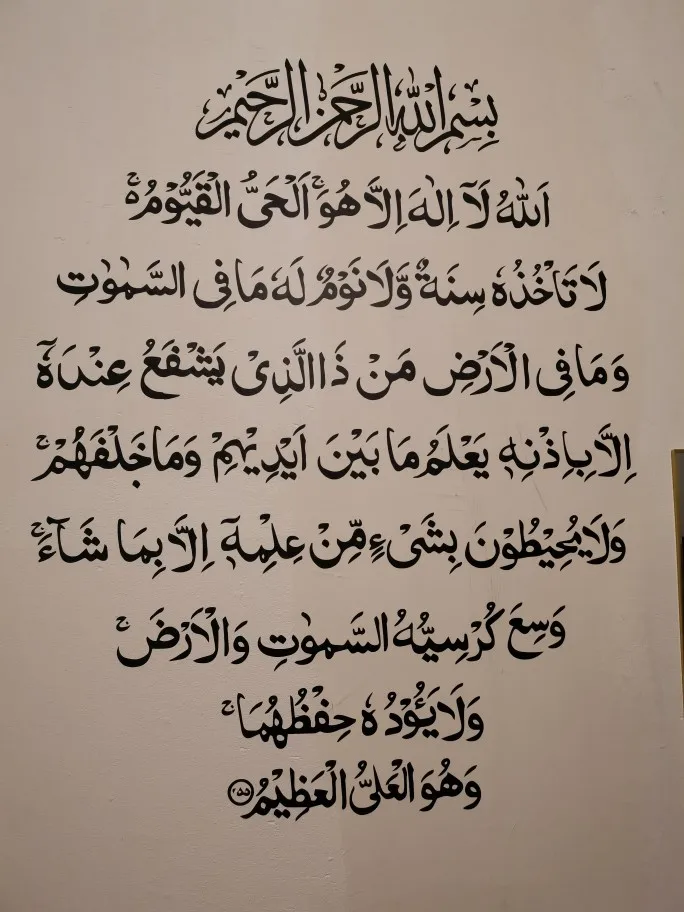 بِسْمِ اللهِ الرَّحْمٰنِ الرَّحِيْمِ
اَللّٰهُ لَآ اِلٰهَ اِلَّا هُوَ ۚ اَلْحَىُّ الْقَيُّوْمُ ەۚ
لَا تَاْخُذُهٗ سِنَةٌ وَّلَا نَوْمٌ لَهٗ مَا فِى السَّمٰوٰتِ
وَمَا فِى الْاَرْضِ مَنْ ذَا الَّذِىْ يَشْفَعُ عِنْدَهٗٓ
اِلَّا بِاِذْنِهٖ يَعْلَمُ مَا بَيْنَ اَيْدِيْهِمْ وَمَا خَلْفَهُمْ ۚ
وَلَا يُحِيْطُوْنَ بِشَىْءٍ مِّنْ عِلْمِهٖٓ اِلَّا بِمَا شَآءَ ۚ
وَسِعَ كُرْسِيُّهُ السَّمٰوٰتِ وَالْاَرْضَ ۚ
وَلَا يَـُٔوْدُهٗ حِفْظُهُمَا ۚ
وَهُوَ الْعَلِىُّ الْعَظِيْمُ ۝۲۵۵